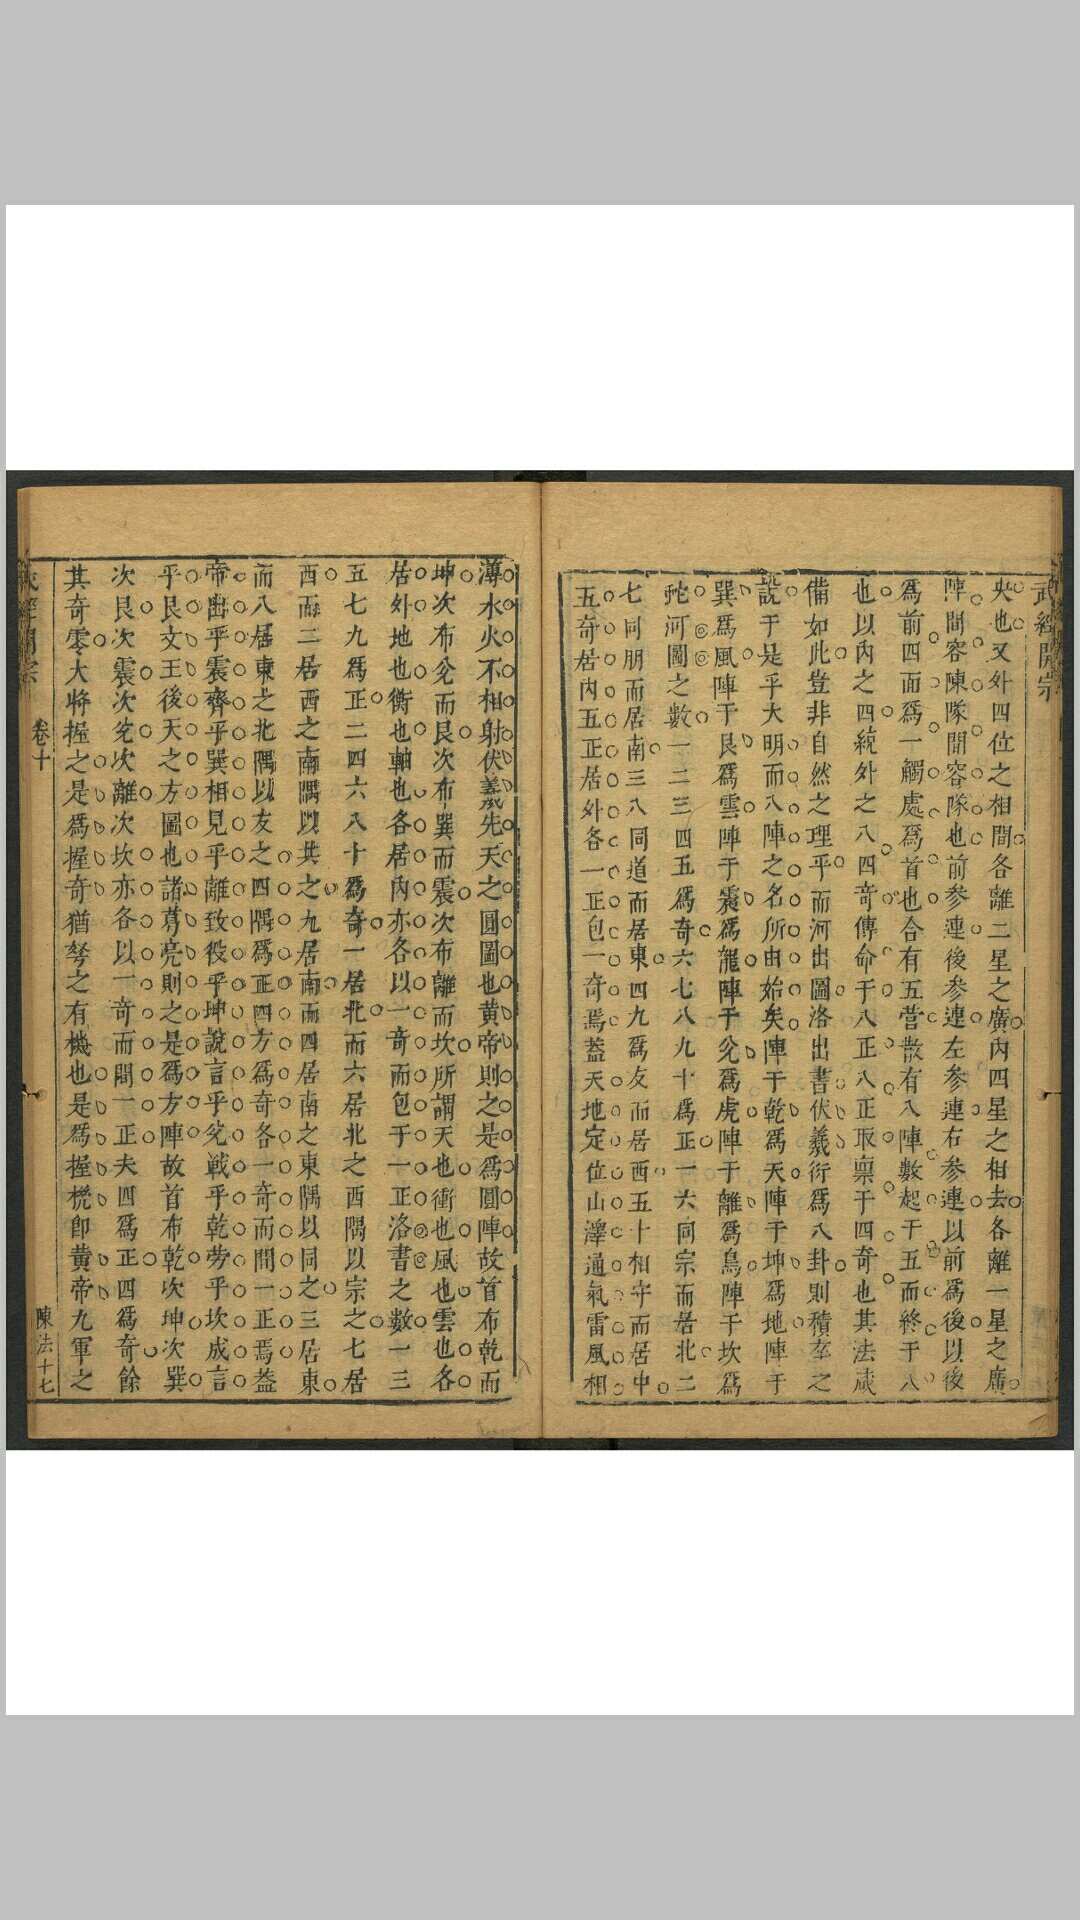 武經開宗
央也又外四位之相間各離二星之廣內四星之相去各離一星之廣
陣間容陳隊間容隊也前參連後參連左參連右參連以前爲後以後
爲前四面爲一觸處爲首也合有五營散有八陣數起于五而終于八
也以內之四統外之八四奇傳命于八正八正取稟于四奇也其法歲
備如此豈非自然之理乎而河出圖洛出書伏羲衍爲八卦則積卒之
說于是乎大明而八陣之名所由始矣陣于乾爲天陣于坤爲地陣于
巽爲風陣于艮爲雲陣于震爲龍陣于兌爲虎陣于離爲鳥陣于坎爲
蛇河圖之數一二三四五爲奇六七八九十爲正一六同宗而居北二
七同朋而居南三八同道而居東四九爲友而居西五十相守而居中
五奇居內五正居外各一正包一奇焉蓋天地定位山澤通氣雷風相
薄水火不相射伏羲先天之圓圖也黄帝則之是爲圓陣故首布乾而
坤次布兌而艮次布巽而震次布離而坎所謂天也衝也風也雲也各
居外地也衡也軸也各居內亦各以一奇而包于一正洛書之數一三
五七九爲正二四六八十爲奇一居北而六居北之西隅以宗之七居
西而二居西之南隅以共之九居南而四居南之東隅以同之三居東
而八居東之北隅以友之四隅爲正四方爲奇各一奇而間一正焉蓋
帝出乎震齊乎巽相見乎離致役乎坤說言乎兌戰乎乾勞乎坎成言
乎艮文王後天之方圖也諸葛亮則之是爲方陣故首布乾次坤次巽
次艮次震次兌次離次坎亦各以一奇而間一正夫四爲正四爲奇餘
其奇零大將握之是爲握奇猶弩之有機也是爲握機卽黄帝九軍之
武經開宗
卷十
陳法十七